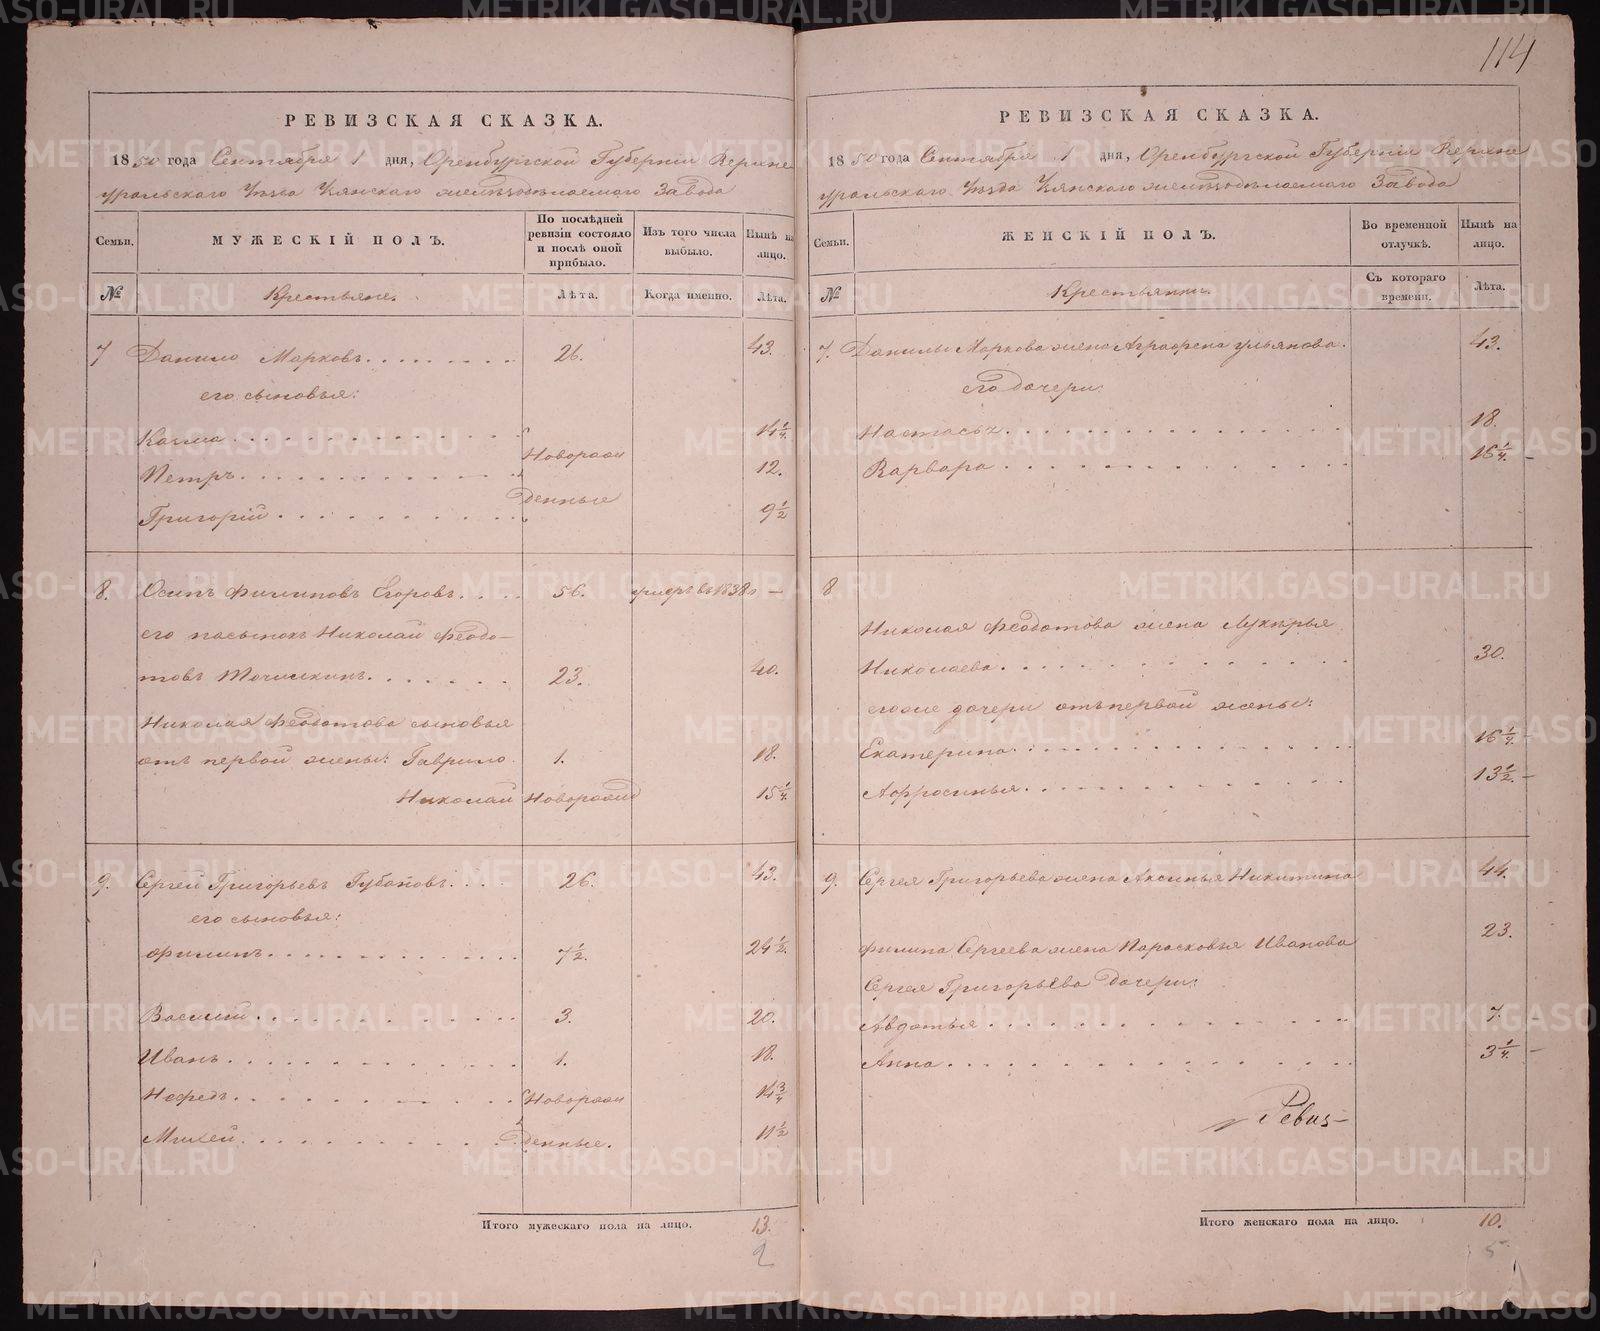 114
РЕВИЗСКАЯ СКАЗКА.
1850 года Сентября 1 дня, Оренбургской Губернiи Верхне
уральскаго Уѣзда Кянскаго железодѣлаемаго Завода
Семьи.
МУЖЕСКІЙ ПОЛЪ.
По послѣдней ревизіи состояло и послѣ оной прибыло.
Изъ того числа выбыло.
Нынѣ на лицо.
№
Крестьяне.
Лѣта.
Когда именно.
Лѣта.
7 Данило Марковъ 26. 43.
его сыновья:
Козма 14 1/4
Петръ Новорож 12.
Григорій денные 9 1/2
8. Осипъ Филиповъ Егоровъ 56. умеръ въ 1838 г —
его пасынокъ Николай Ѳеодо-
товъ Точилкинъ 23. 40.
Николая Ѳеодотова сыновья
отъ первой жены: Гаврило 1. 18.
Николай Новорожд 15 1/4
9. Сергей Григорьевъ Губановъ 26. 43.
его сыновья:
Филипъ 7 1/2. 24 1/2
Василій 3. 20.
Иванъ 1. 18.
Нефедъ Новорож 14 3/4
Михей денные. 11 1/2
Итого мужескаго пола на лицо. 13.
2
РЕВИЗСКАЯ СКАЗКА.
1850 года Сентября 1 дня, Оренбургской Губернiи Верхне
уральскаго Уѣзда Кянскаго железодѣлаемаго Завода
Семьи.
ЖЕНСКІЙ ПОЛЪ.
Во временной отлучкѣ.
Нынѣ на лицо.
№
Крестьянки.
Съ котораго времени.
Лѣта.
7. Данилы Маркова жена Аграфена Ульянова. 43.
его дочери:
Настасья 18.
Варвара 16 1/4 -
8
Николая Ѳеодотова жена Лукерья
Николаева 30.
егоже дочери отъ первой жены:
Екатерина 16 1/4 -
Афросинья 13 1/2 -
9. Сергея Григорьева жена Аксинья Никитина 44.
Филипа Сергеева жена Парасковья Иванова 23.
Сергея Григорьева дочери:
Авдотья 7.
Анна 3 1/4 -
Ревиз-
Итого женскаго пола на лицо. 10.
5
METRIKI.GASO-URAL.RU